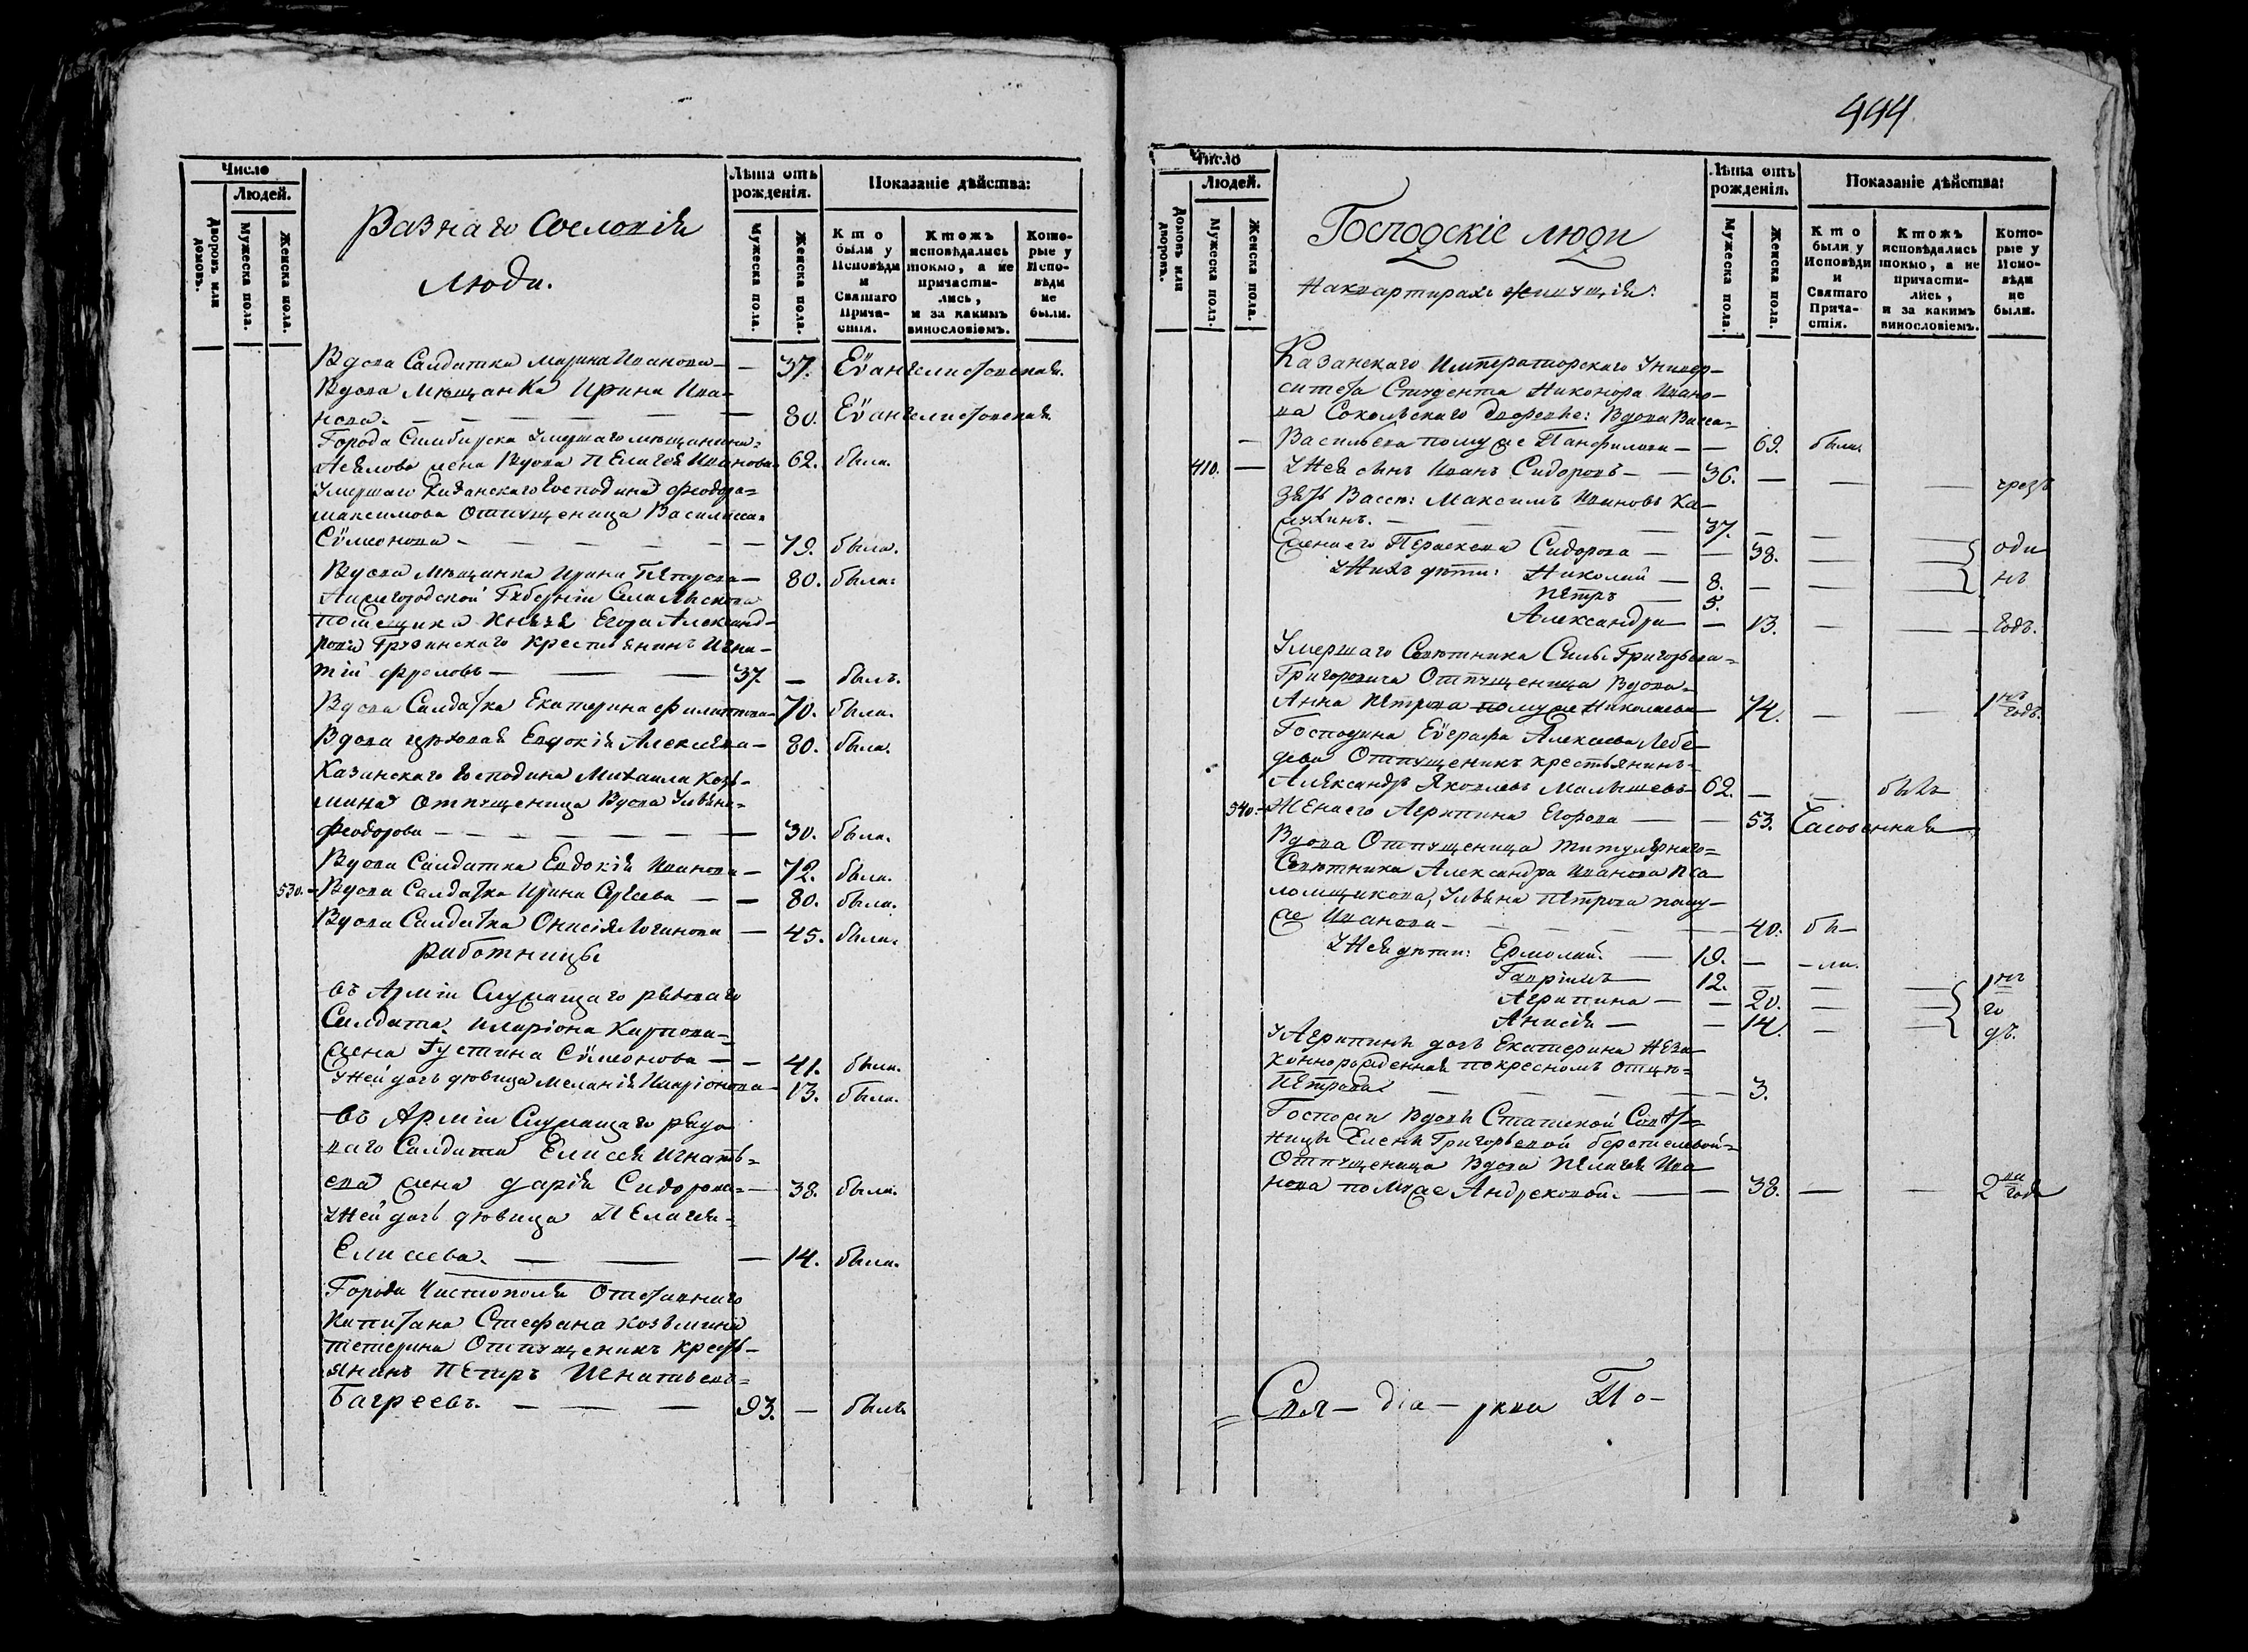 494
Число
Людей.
Дворовъ или домовъ.
Мужеска пола.
Женска пола.
Разнаго Сословія
Люди.
Лѣта отъ рожденія.
Мужеска пола.
Женска пола.
Показаніе дѣйства:
Кто были у Исповѣди и Святаго Причастія.
Ктожъ исповѣдались токмо, а не причастились, и за какимъ винословіемъ.
Которые у Исповѣди не были.
Вдова Салдатка Марина Иванова — — 37. Еѵангелистовская.
Вдова Мѣщанка Ирина Ива-
нова. — — — — — 80. Еѵангелистовская
Города Симбирска Умершаго мѣщанина=
жена Вдова Пелагея Иванова 62. была.
Умершаго Казанскаго Господина Феодора=
Максимова Отпущеница Василиса=
Сѵмеонова — — — — — 79. была.
Вдова Мѣщанка Ирина Петрова — 80. была.
Нижегородской Губерніи Села Лыскова
помещика Князя Егора Александ-
рова Грузинскаго крестьянинъ Игна-
тій Фроловъ — — — 37. — былъ.
Вдова Салдатка Екатерина Филиппова — 70. была.
Вдова Евдокія Алексеева — 80. была.
Казанскаго Господина Михаила Козь-
мина Отпущеница Вдова Ульяна=
Феодорова — — — — — — 30. была.
Вдова Салдатка Евдокія Иванова — 72. была.
530. Вдова Салдатка Ирина Сергеева — — 80. была.
Вдова Салдатка Онисія Логинова — 45. была.
работницы
въ Арміи Служащаго рядоваго
Салдата Иларіона Карпова=
жена Густина Сѵмеонова — — 41. была.
У Ней дочь дѣвица Меланія Иларіонова — 13. была.
въ Арміи Служащаго рядо
ваго Салдата Елисея Игнать=
ева жена Дарія Сидорова — 38. была.
У Ней дочь дѣвица Пелагея=
Елисеева. — — — 14. была.
Города Чистополя Отставнаго
Капитана Стефана Козьмина
Тетерина Отпущеникъ крест-
янинъ Петръ Игнатьевъ=
Багреевъ. — — — 93. — былъ.
Число
Людей.
Домовъ или дворовъ.
Мужеска пола.
Женска пола.
Господскіе люди
На квартирахъ живущія:
Лѣта отъ рожденія.
Мужеска пола.
Женска пола.
Показаніе дѣйства:
Кто были у Исповѣди и Святаго Причастія.
Ктожъ исповѣдались токмо, а не причастились, и за какимъ винословіемъ.
Которые у Исповѣди не были.
Казанскаго Императорскаго Универ-
ситета Студента Никонора Ивано-
ва Сокольскаго дворовые: Вдова Васса=
— Васильева по мужѣ Панфилова — — 69. была.
410. — У Нея сынъ Иванъ Сидоровъ — — 36. — — — чрезъ
зять Вассы: Максимъ Ивановъ Ка-
лухинъ. — — — 37. — —
Жена его Перасковья Сидорова — — 38. — — оди
У Нихъ дѣти: Николай — 8. — — нъ
Петръ — 5.
Александра — — 13. — — годъ.
Умершаго Советника Силы Григорьева=
Григоровича Отпущеница Вдова=
Анна Петрова по мужѣ Николаева — 74. — — 1нъ годъ.
Господина Еѵграфа Алексеева Лебе-
дева Отпущеникъ крестьянинъ=
Александръ Яковлевъ Малышевъ — 62. — — былъ
540. — Жена его Агрипина Егорова — — 53. Часовенная
Вдова Отпущеница титулярнаго=
Советника Александра Иванова Пса
ломщикова, Ульяна Петрова по му-
жѣ Иванова — — — — 40. бы—
У Нея дѣти: Ермолай. — 19. — —ли.
Гавріилъ — 12. — — 1нъ
Агрипина — — 20. — — го
Анисія — — 14. — — дъ.
У Агрипины дочь Екатерина Неза-
коннорожденная по кресномъ отцѣ=
Петрова — — — — 3.
Госпожи Вдовы Статской Совѣт=
ницы Елены Григорьевой Берстелевой=
Отпущеница Вдова Пелагея Ива
нова по мужѣ Андрековой. — — 38. — — 2ва года
= Свя — діа — рква По—